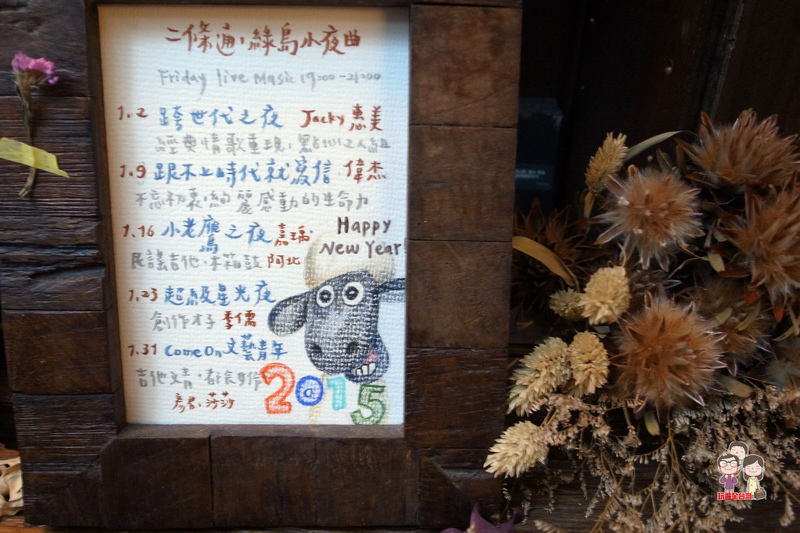 二條通‧綠島小夜曲
Friday live Music 19:00-21:00
1.2 跨世代之夜 Jacky 惠美
經典情歌重現,
1.9 跟不上時代就 信 偉杰
不忘初衷‧絢麗感動的生命力
1.16 小老鷹之夜 嘉瑀
民謠吉他‧木箱鼓 阿北
Happy
New Year
1.23 超級星光夜
創作才子 季儒
1.31 Come On 文藝青年
吉他文青‧
彥君‧莎莎
2015